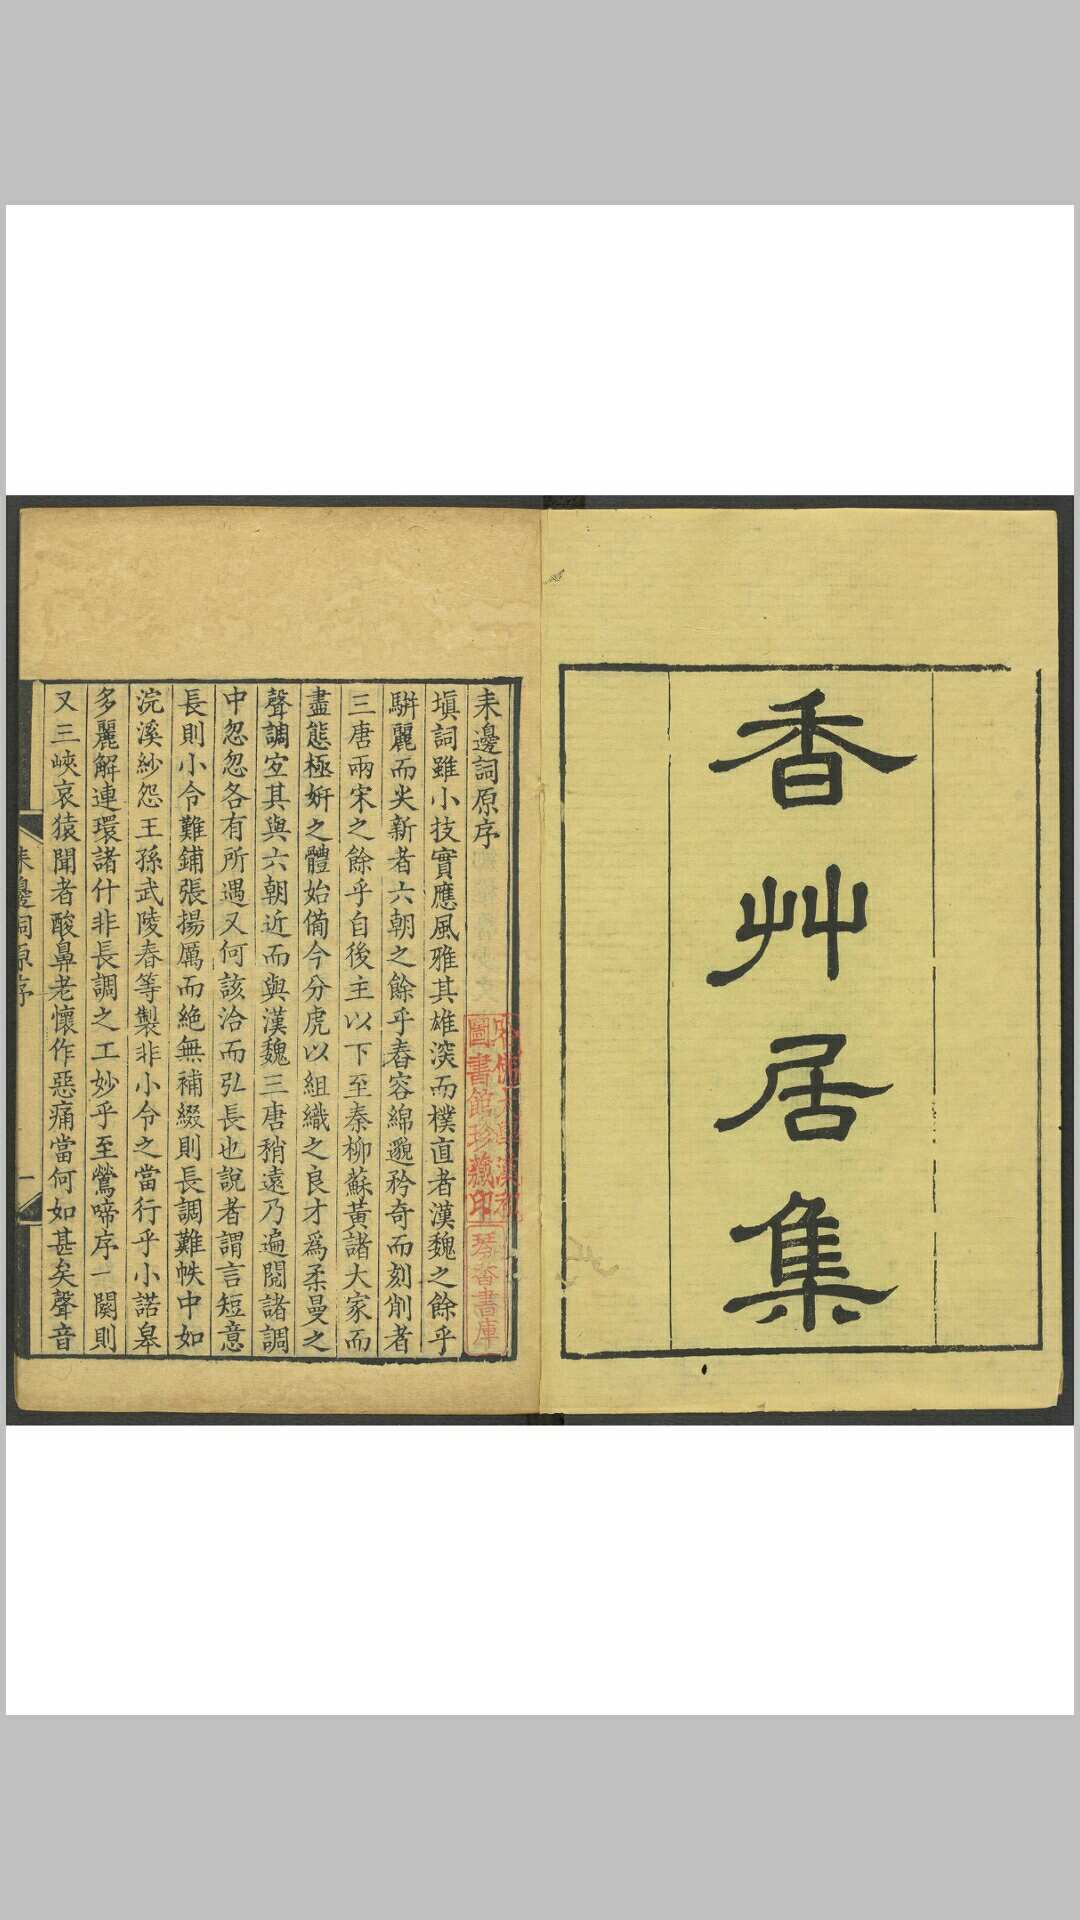 香艸居集
耒邊詞原序
塡詞雖小技實應風雅其雄深而樸直者漢魏之餘乎
騈麗而尖新者六朝之餘乎春容綿邈矜奇而刻削者
三唐兩宋之餘乎自後主以下至秦柳蘇黃諸大家而
盡態極姸之體始備今分虎以組織之良才爲柔曼之
聲調宐其與六朝近而與漢魏三唐稍遠乃遍閱諸調
中忽忽各有所遇又何該洽而弘長也說者謂言短意
長則小令難鋪張揚厲而絶無補綴則長調難帙中如
浣溪紗怨王孫武陵春等製非小令之當行乎小諾皋
多麗解連環諸什非長調之工妙乎至鶯啼序一闋則
又三峽哀猿聞者酸鼻老懷作惡痛當何如甚矣聲音
耒邊詞原序
一
大學漢和
圖書館珍藏印
琴香書庫